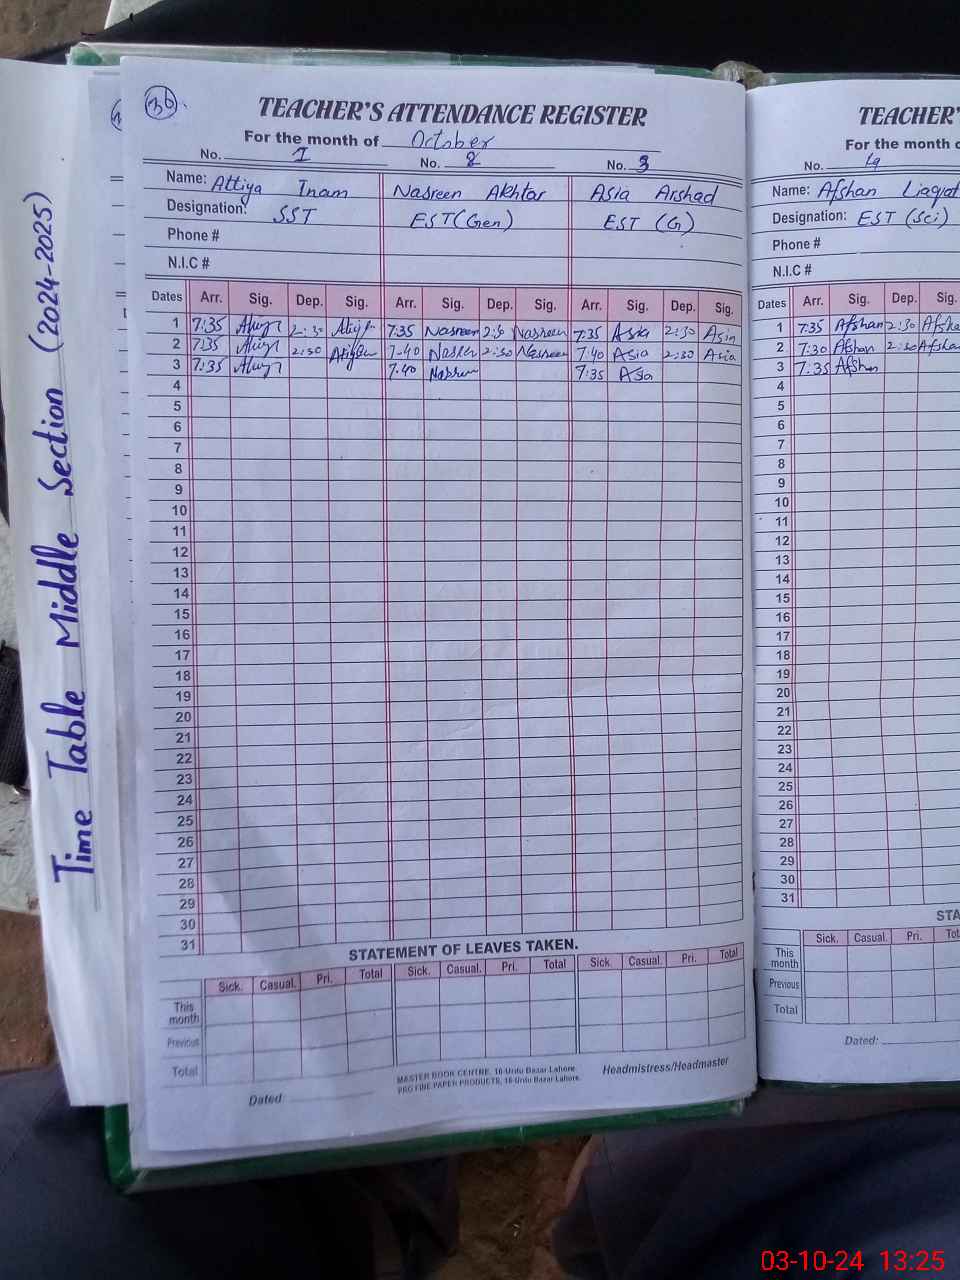 36
TEACHER'S ATTENDANCE REGISTER
For the month of October
No. 1 No. 2 No. 3
Name: Attiya Inam Nasreen Akhtar Asia Arshad
Designation: SST EST (Gen) EST (G)
Phone #
N.I.C #
Dates Arr. Sig. Dep. Sig. Arr. Sig. Dep. Sig. Arr. Sig. Dep. Sig.
1 7:35 2:30 7:35 Nasreen Nasreen 7:35 Asia 2:30 Asia
2 7:35 2:30 7:40 Nasreen 2:30 Nasreen 7:40 Asia 2:30 Asia
3 7:35 7:40 Nasreen 7:35 Asia
4
5
6
7
8
9
10
11
12
13
14
15
16
17
18
19
20
21
22
23
24
25
26
27
28
29
30
31
STATEMENT OF LEAVES TAKEN.
Sick. Casual. Pri. Total Sick. Casual. Pri. Total Sick. Casual. Pri. Total
This month
Previous
Total
MASTER BOOK CENTRE, 16-Urdu Bazar Lahore.
PRO FINE PAPER PRODUCTS, 16-Urdu Bazar Lahore.
Headmistress/Headmaster
Dated
TEACHER'
For the month o
No. 4
Name: Afshan Liaqat
Designation: EST (Sci)
Phone #
N.I.C #
Dates Arr. Sig. Dep. Sig.
1 7:35 Afshan 2:30 Afsha
2 7:30 Afshan 2:30 Afshan
3 7:35 Afshan
4
5
6
7
8
9
10
11
12
13
14
15
16
17
18
19
20
21
22
23
24
25
26
27
28
29
30
31
STA
Sick. Casual. Pri. Tot
This month
Previous
Total
Dated:
Time Table Middle Section (2024-2025)
03-10-24 13:25